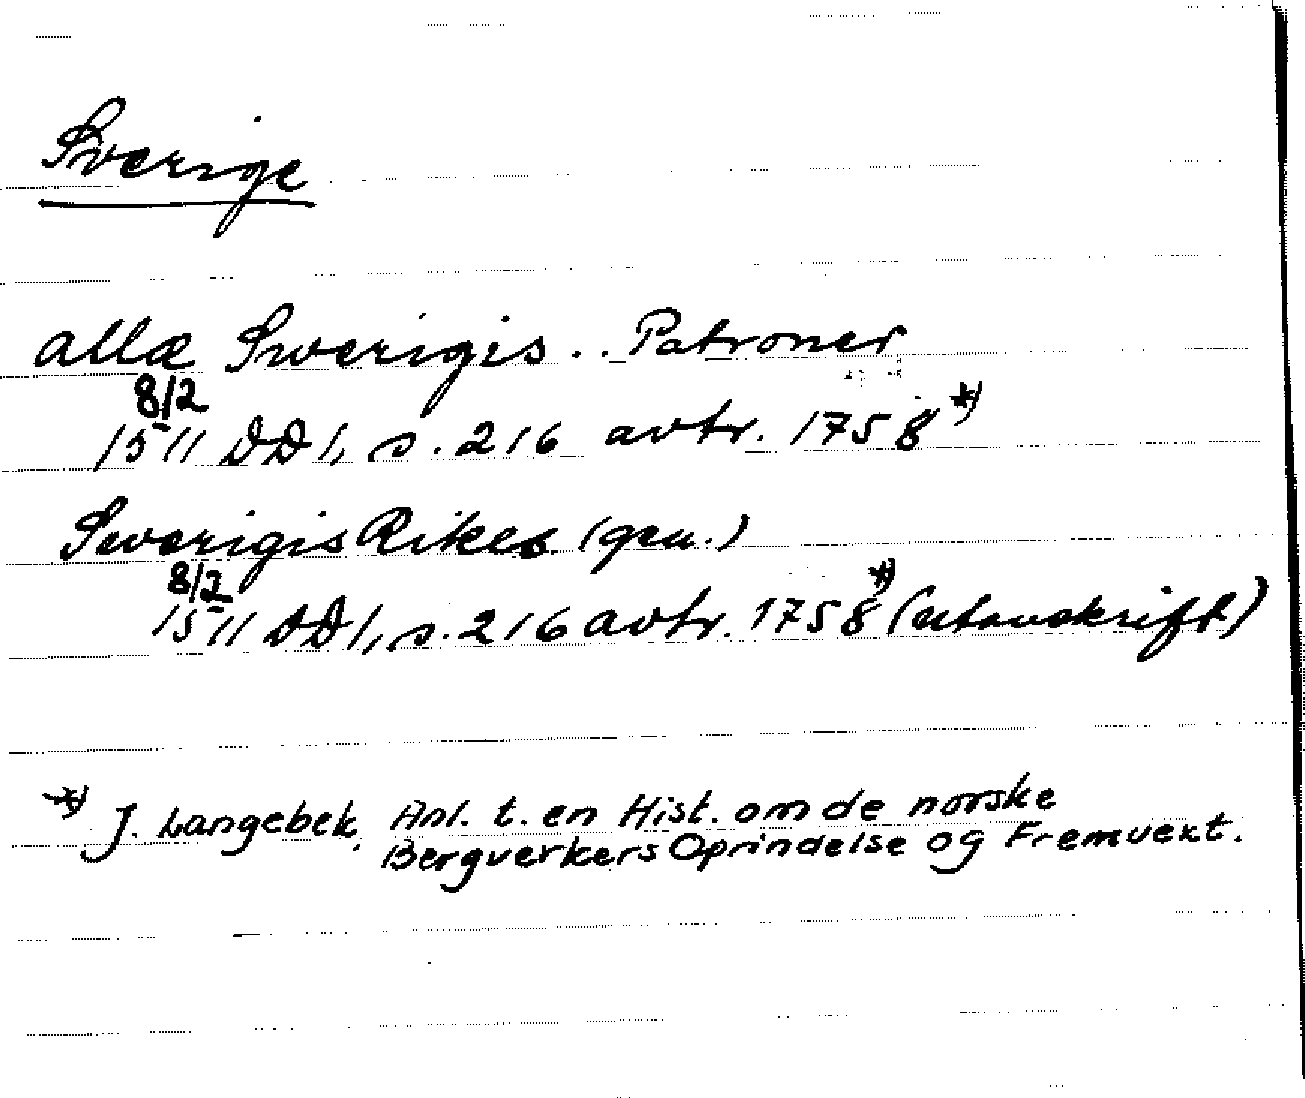 Sverige
allæ Swerigis .. Patroner
8/2
1511 DD 1, s. 216 avtr. 1758 *)
Swerigis Rikes (gen.)
8/2
1511 DD 1, s. 216 avtr. 1758 *) (utanskrift)
*) J. Langebek, Anl. t. en Hist. om de norske
Bergverkers Oprindelse og Fremvext.